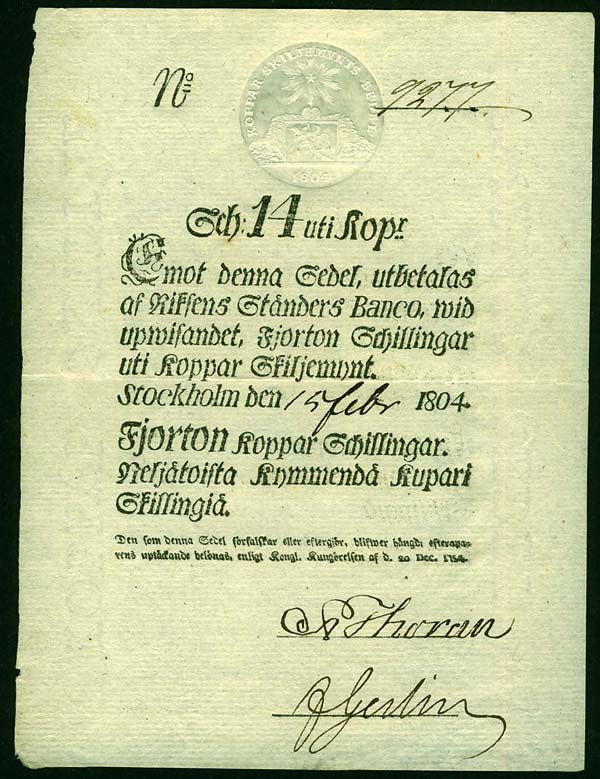 No 9277.
KOPPAR SKILJEMYNTS SEDEL
1804
Sch: 14 uti Kop.r
Emot denna Sedel, utbetalas
af Riksens Ständers Banco, wid
upwisandet, Fjorton Schillingar
uti Koppar Skiljemynt.
Stockholm den 15 febr 1804.
Fjorton Koppar Schillingar.
Neljätoista Kymmendä Kupari
Skillingiä.
Den som denna Sedel förfalskar eller eftergiör, blifwer hängd; efterapa-
rens uptäckande belönas, enligt Kongl. Kungörelsen af d. 20 Dec. 1754.
Thoran